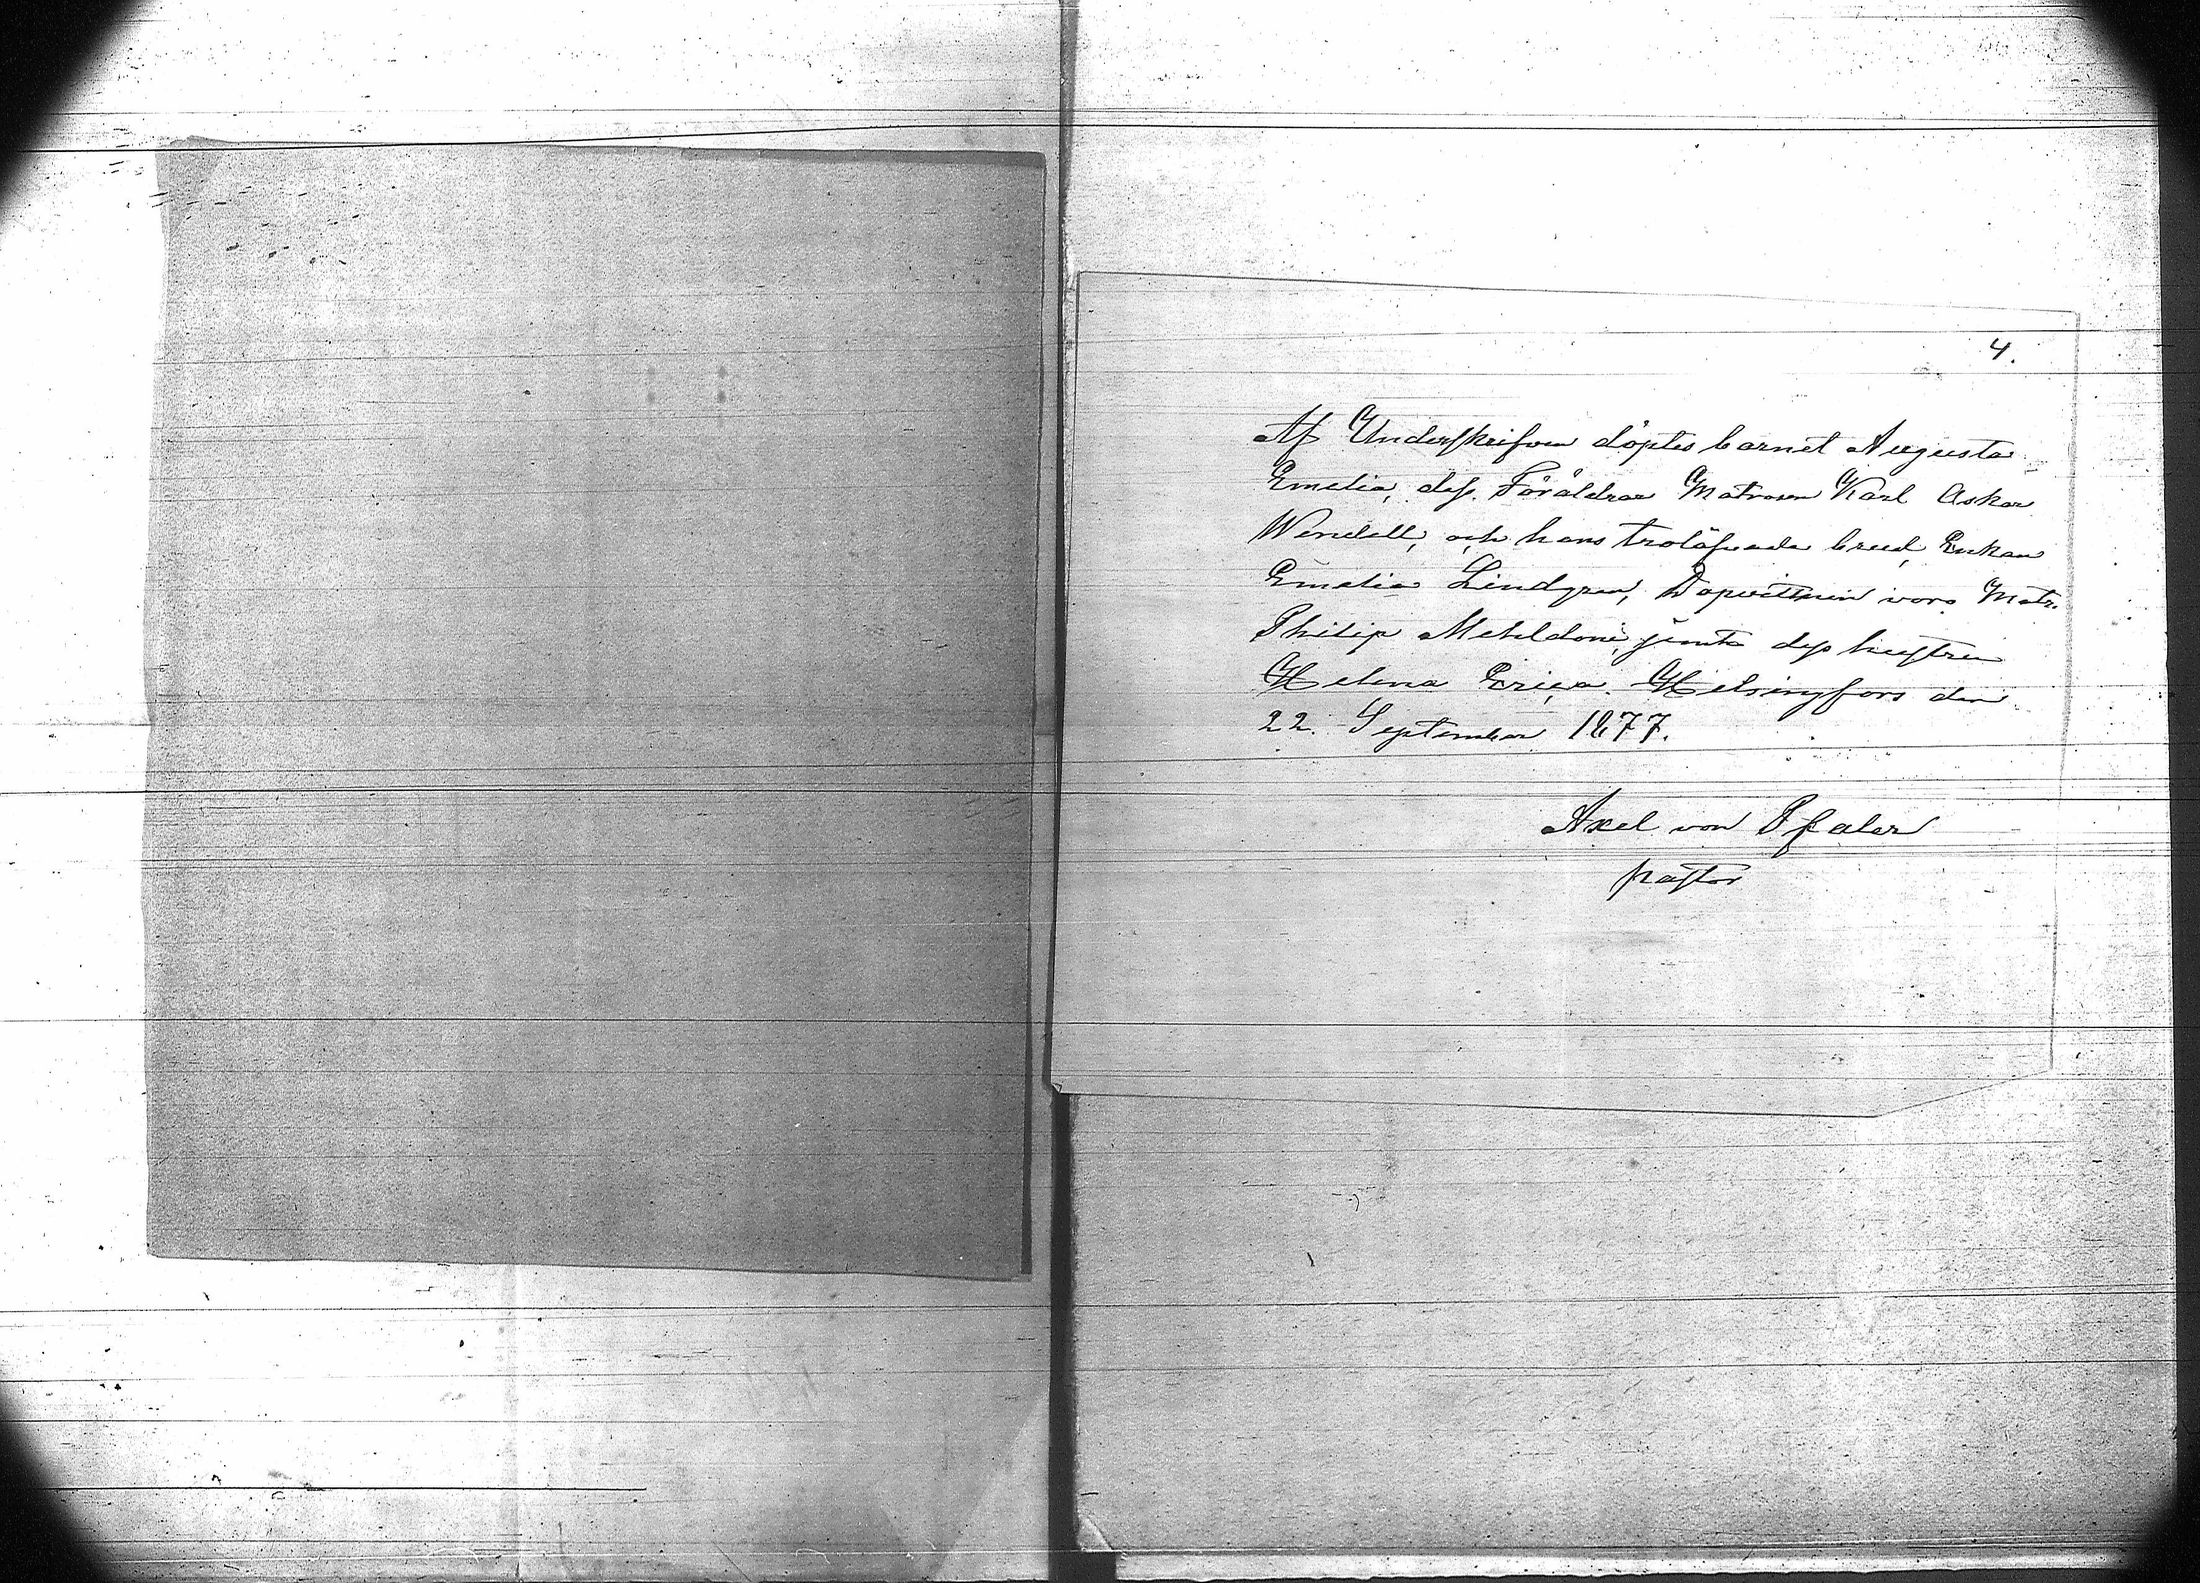 4.
Af Underskrifven döptes barnet Augusta
Emelia, dess Föräldrar Matrosen Karl Oskar
Wendell, och hans trolofvade brud, Enkan
Emelia Lindgren, Dopvittnen voro Matr.
Philip jemte dess hustru
Helena Erica. Helsingfors den
22. September 1877.
Axel von Pfaler
pastor